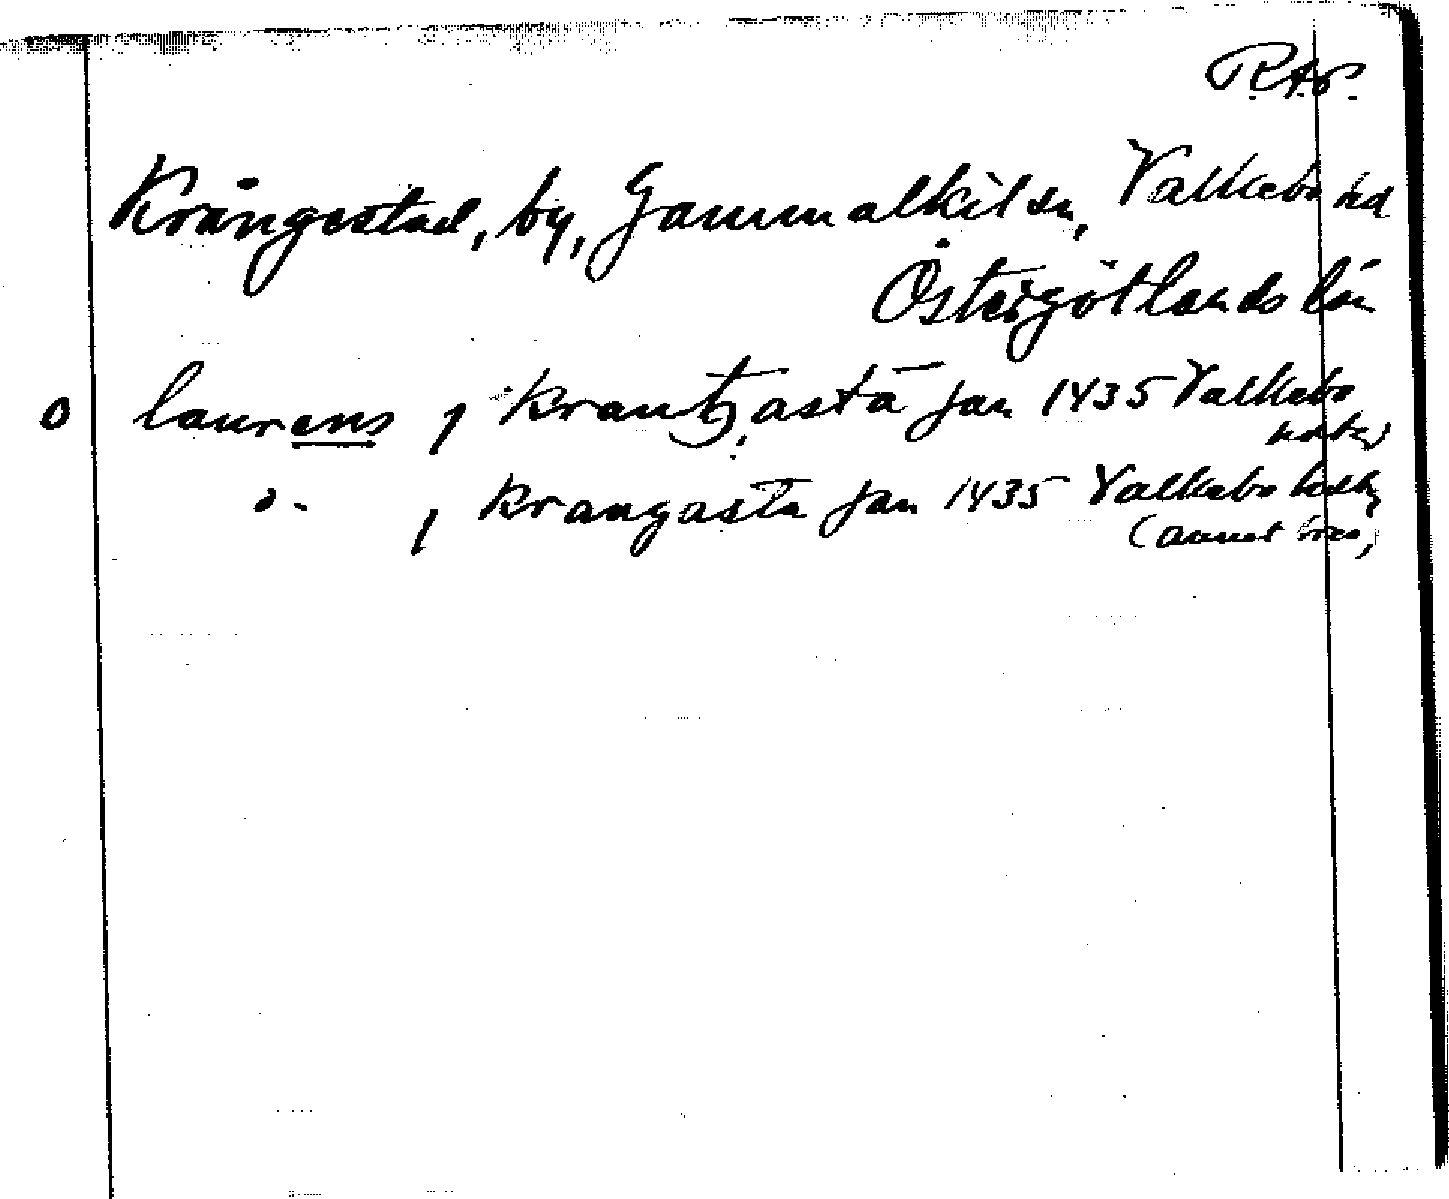 R.A.P.
Krångestad, by, Gammalkilsn, Valkebo hd
Östergötlands län
o laurens j krantzasta jan 1435 Valkebo
hdtg
o. j krangasta jan 1435 Valkebo hdtg
(annet brev)